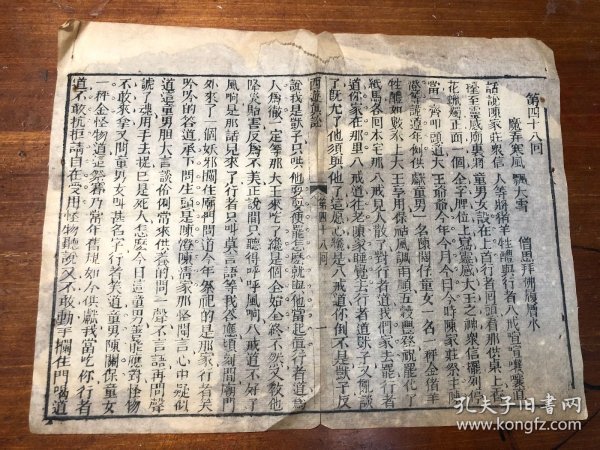 第四十八回
魔弄寒風飄大雪　僧思拜佛履層氷
話說陳家莊衆信人等將猪羊牲醴與行者八戒喧喧嚷嚷
擡至靈感廟裏將童男女設在上首行者回頭看那供桌上香
花蠟燭正面一個金字牌位上寫靈感大王之神衆信擺列停
當一齊叩頭道大王爺爺今年今月今日今時陳家莊祭主陳
澄等謹遵年例供獻童男一名陳關保童女一名一秤金猪羊
牲醴如數奉上大王享用保祐風調雨順五穀豐登祝罷化了
紙馬各回本宅那八戒見人散了對行者道我們家去罷行者
道你家在那里八戒道往老陳家睡覺去行者道獃子又亂談
了旣允了他須與他了這願心纔是八戒道你倒不是獃子反
西遊真詮　第四十八回　一
說我是獃子只哄他耍耍便罷怎麽就與他當起真行者道爲
人爲徹一定等那大王來吃了纔是個全終不然又敎他
降災貽害反爲不美正說間只聽得呼呼風响八戒道不好了
風响是那話見來了行者只叫莫言語等我答應頃刻間廟門
外來了一個妖邪攔住廟門問道今年祭祀的是那家行者笑
吟吟的答道承下問庄頭是陳澄陳清家那怪聞言心中疑似
道這童男胆大言談伶俐常來供養的問一聲不言語再問聲
諕了魂用手去捉已是死人怎麽今日這童男善能應對怪物
不敢來拿又問童男女叫甚名字行者笑道童男陳關保童女
一秤金怪物道這祭賽乃常年舊規如今供獻我當吃你行者
道不敢抗拒請自在受用怪物聽說又不敢動手攔住門喝道
孔夫子旧书网
www.kongfz.com